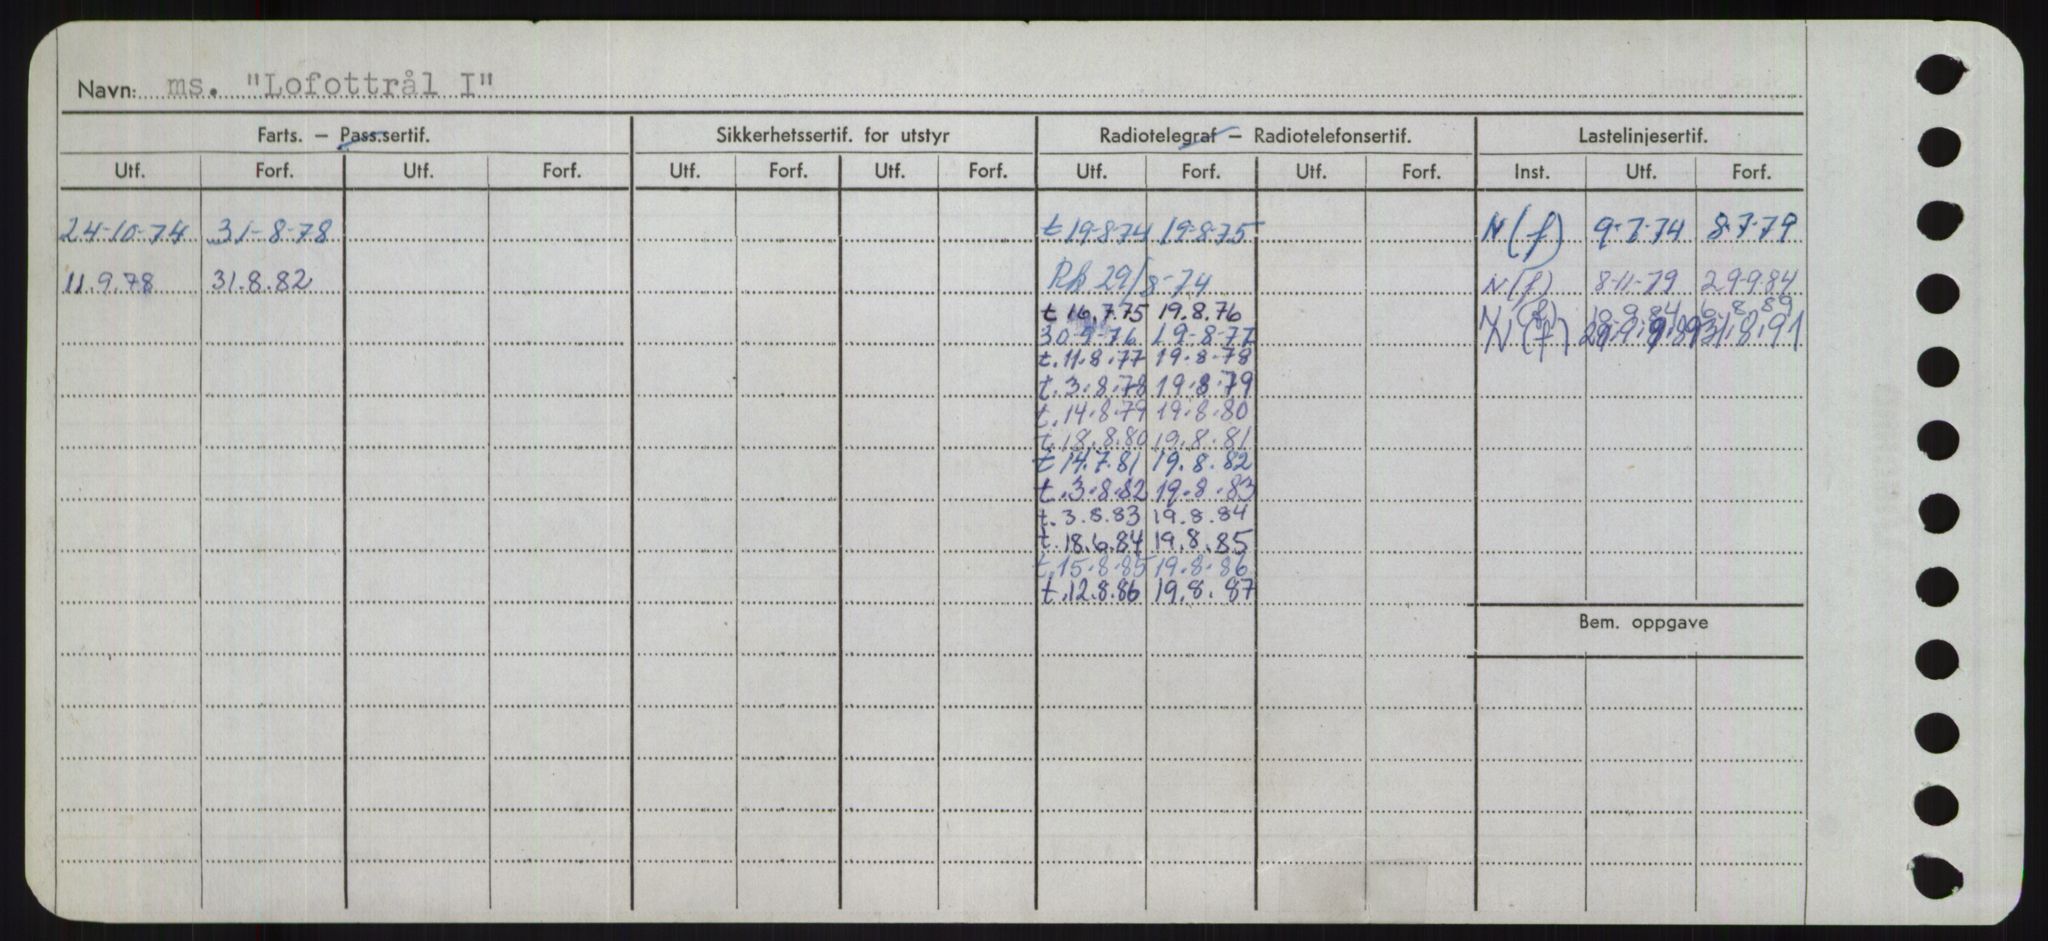 Navn: ms. "Lofottrål I"
Farts. — Pass.sertif. Sikkerhetssertif. for utstyr Radiotelegraf — Radiotelefonsertif. Lastelinjesertif.
Utf. Forf. Utf. Forf. Utf. Forf. Utf. Forf. Utf. Forf. Utf. Forf. Inst. Utf. Forf.
24-10-74 31-8-78 t 19-8-74 19-8-75 N(f) 9-7-74 8-7-79
11.9.78 31.8.82 29/8-74 N(f) 8-11-79 29-9-84
t 16.7.75 19.8.76 N(f) 6-8-89
30-9-76 19-8-77 N(f) 31.8.91
t.11.8.77 19.8.78
t.3.8.78 19.8.79
t.14.8.79 19.8.80
t.18.8.80 19.8.81
t 14.7.81 19.8.82
t.3.8.82 19.8.83
t.3.8.83 19.8.84
t.18.6.84 19.8.85
t.15.8.85 19.8.86
t.12.8.86 19.8.87
Bem. oppgave